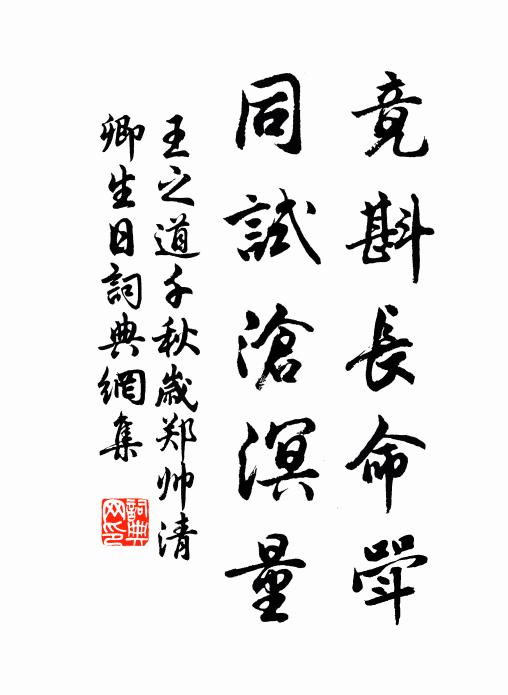 竟斟長命斝
同試滄溟量
王之道千秋歲郑帅清
卿生日詞典網集
詞典网印